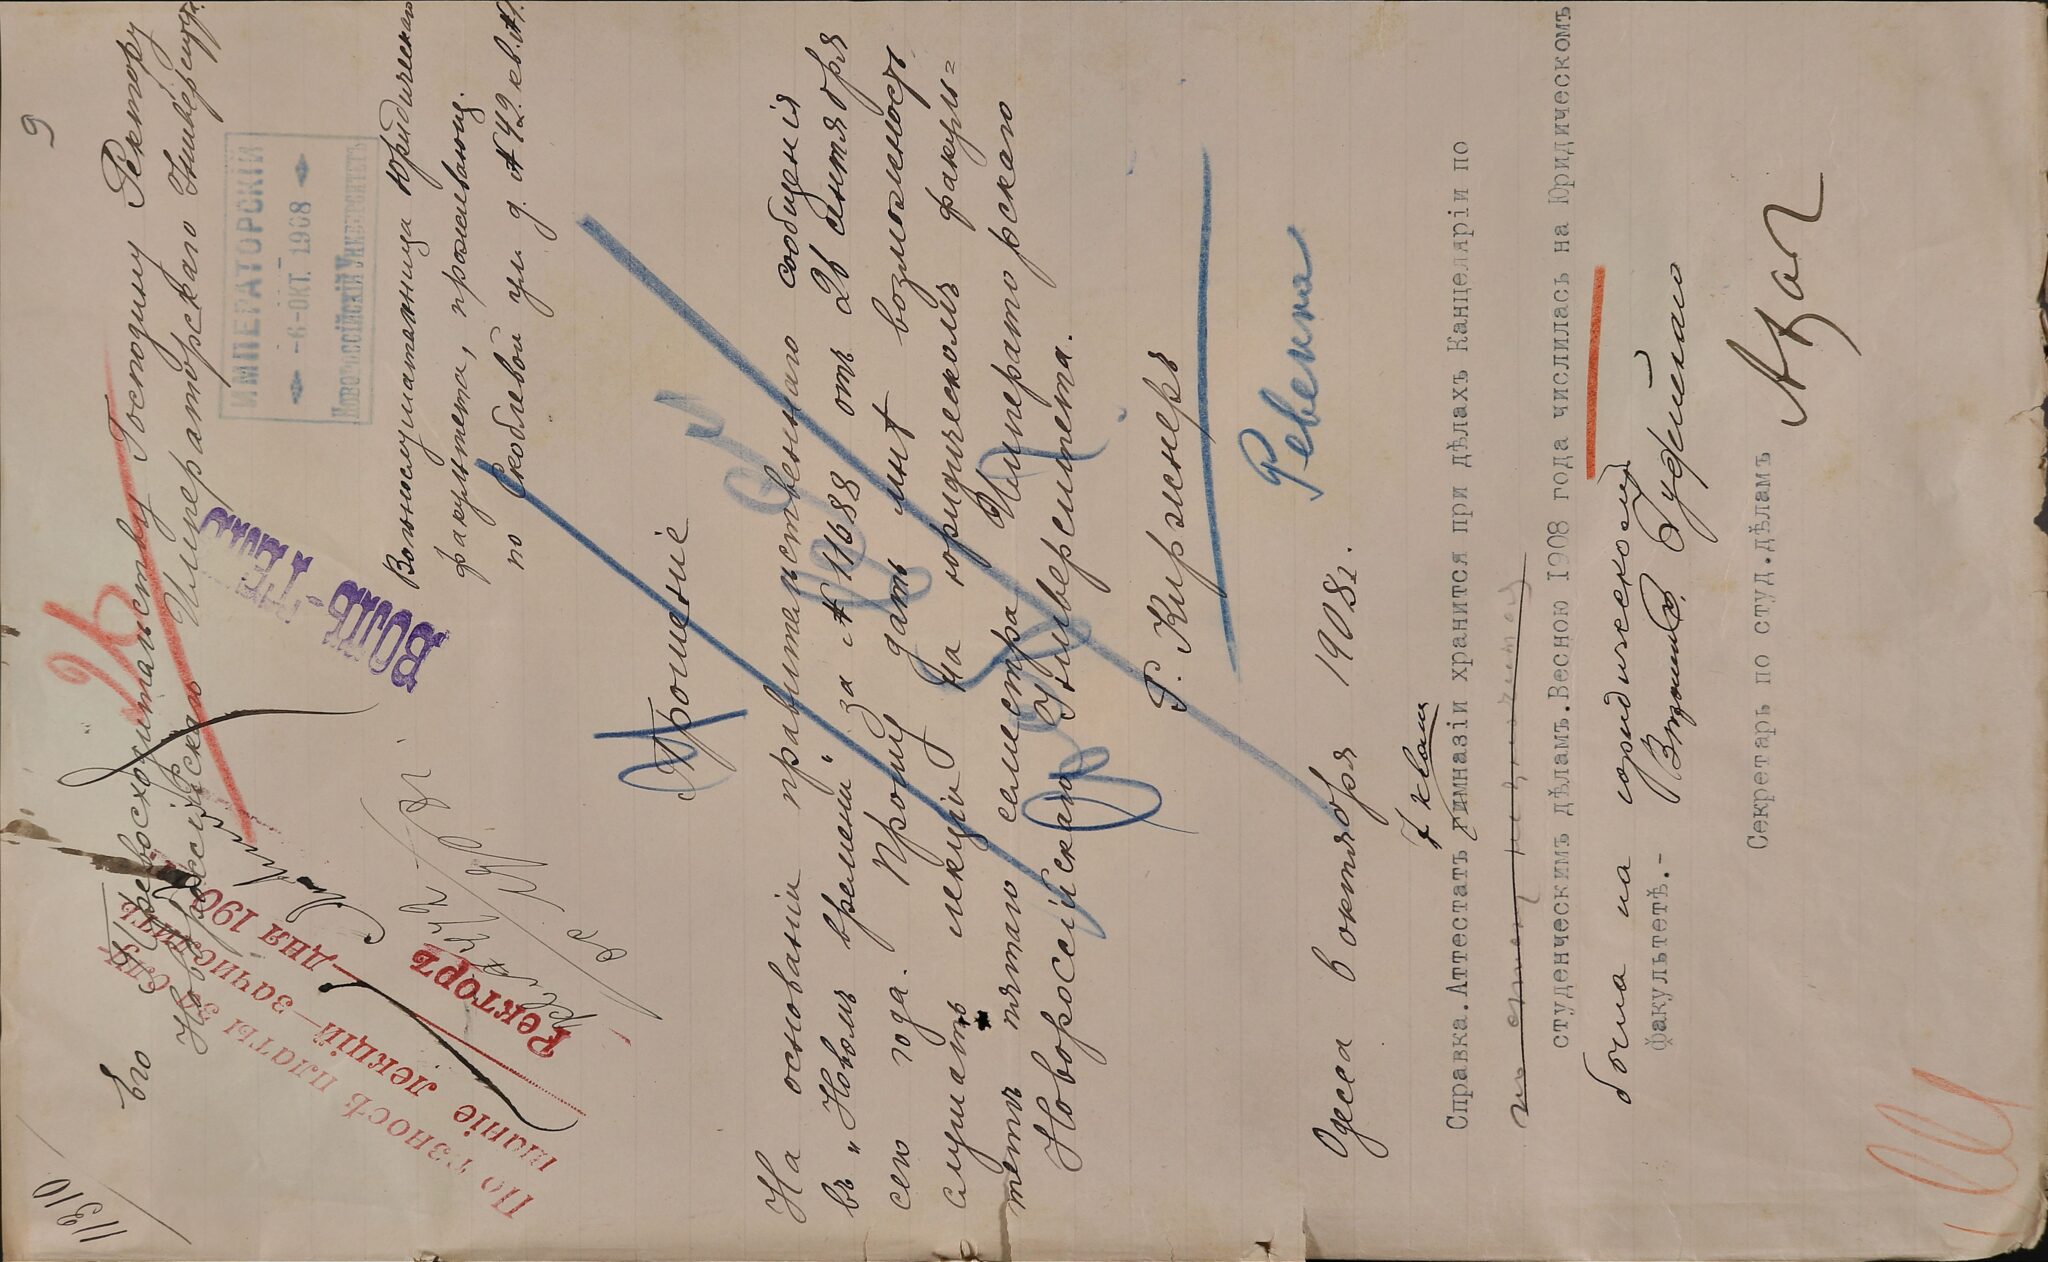 9
11310
Его Превосходительству Господину Ректору
Новороссійскаго Императорскаго Университ
26
ИМПЕРАТОРСКІЙ
-6-ОКТ. 1908
НОВОРОССІЙСКІЙ УНИВЕРСИТЕТЪ
ВОЛЬ
Вольнослушательница Юридическаго
факультета, проживающ.
по Скоблевой ул. д. №42 кв. №
По взносѣ платы за слу
шаніе лекцій — зачислить
дня 190
Ректоръ
Прошеніе
На основаніи правительственнаго сообщенія
въ „Новомъ времени" за № 11688 отъ 26 сентября
сего года. Прошу дать мнѣ возможность
слушать лекціи на юридическомъ факуль=
тетѣ пятаго семестра Императорскаго
Новороссійскаго Университета.
Р. Киржнеръ
Ревекка
Одесса 6 октября 1908 г.
7 клас
Справка. Аттестатъ гимназіи хранится при дѣлахъ Канцеляріи по
студенческимъ дѣламъ. Весною 1908 года числилась на Юридическомъ
была на юридическомъ
факультетѣ.-
Секретарь по студ. дѣламъ